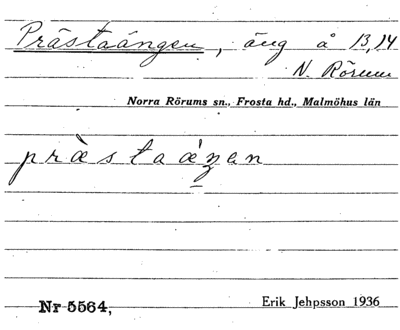 Prästaängen, äng å 13,14
N. Rörum
Norra Rörums sn., Frosta hd., Malmöhus län
prὰstaáŋen
Nr 5564,
Erik Jehpsson 1936